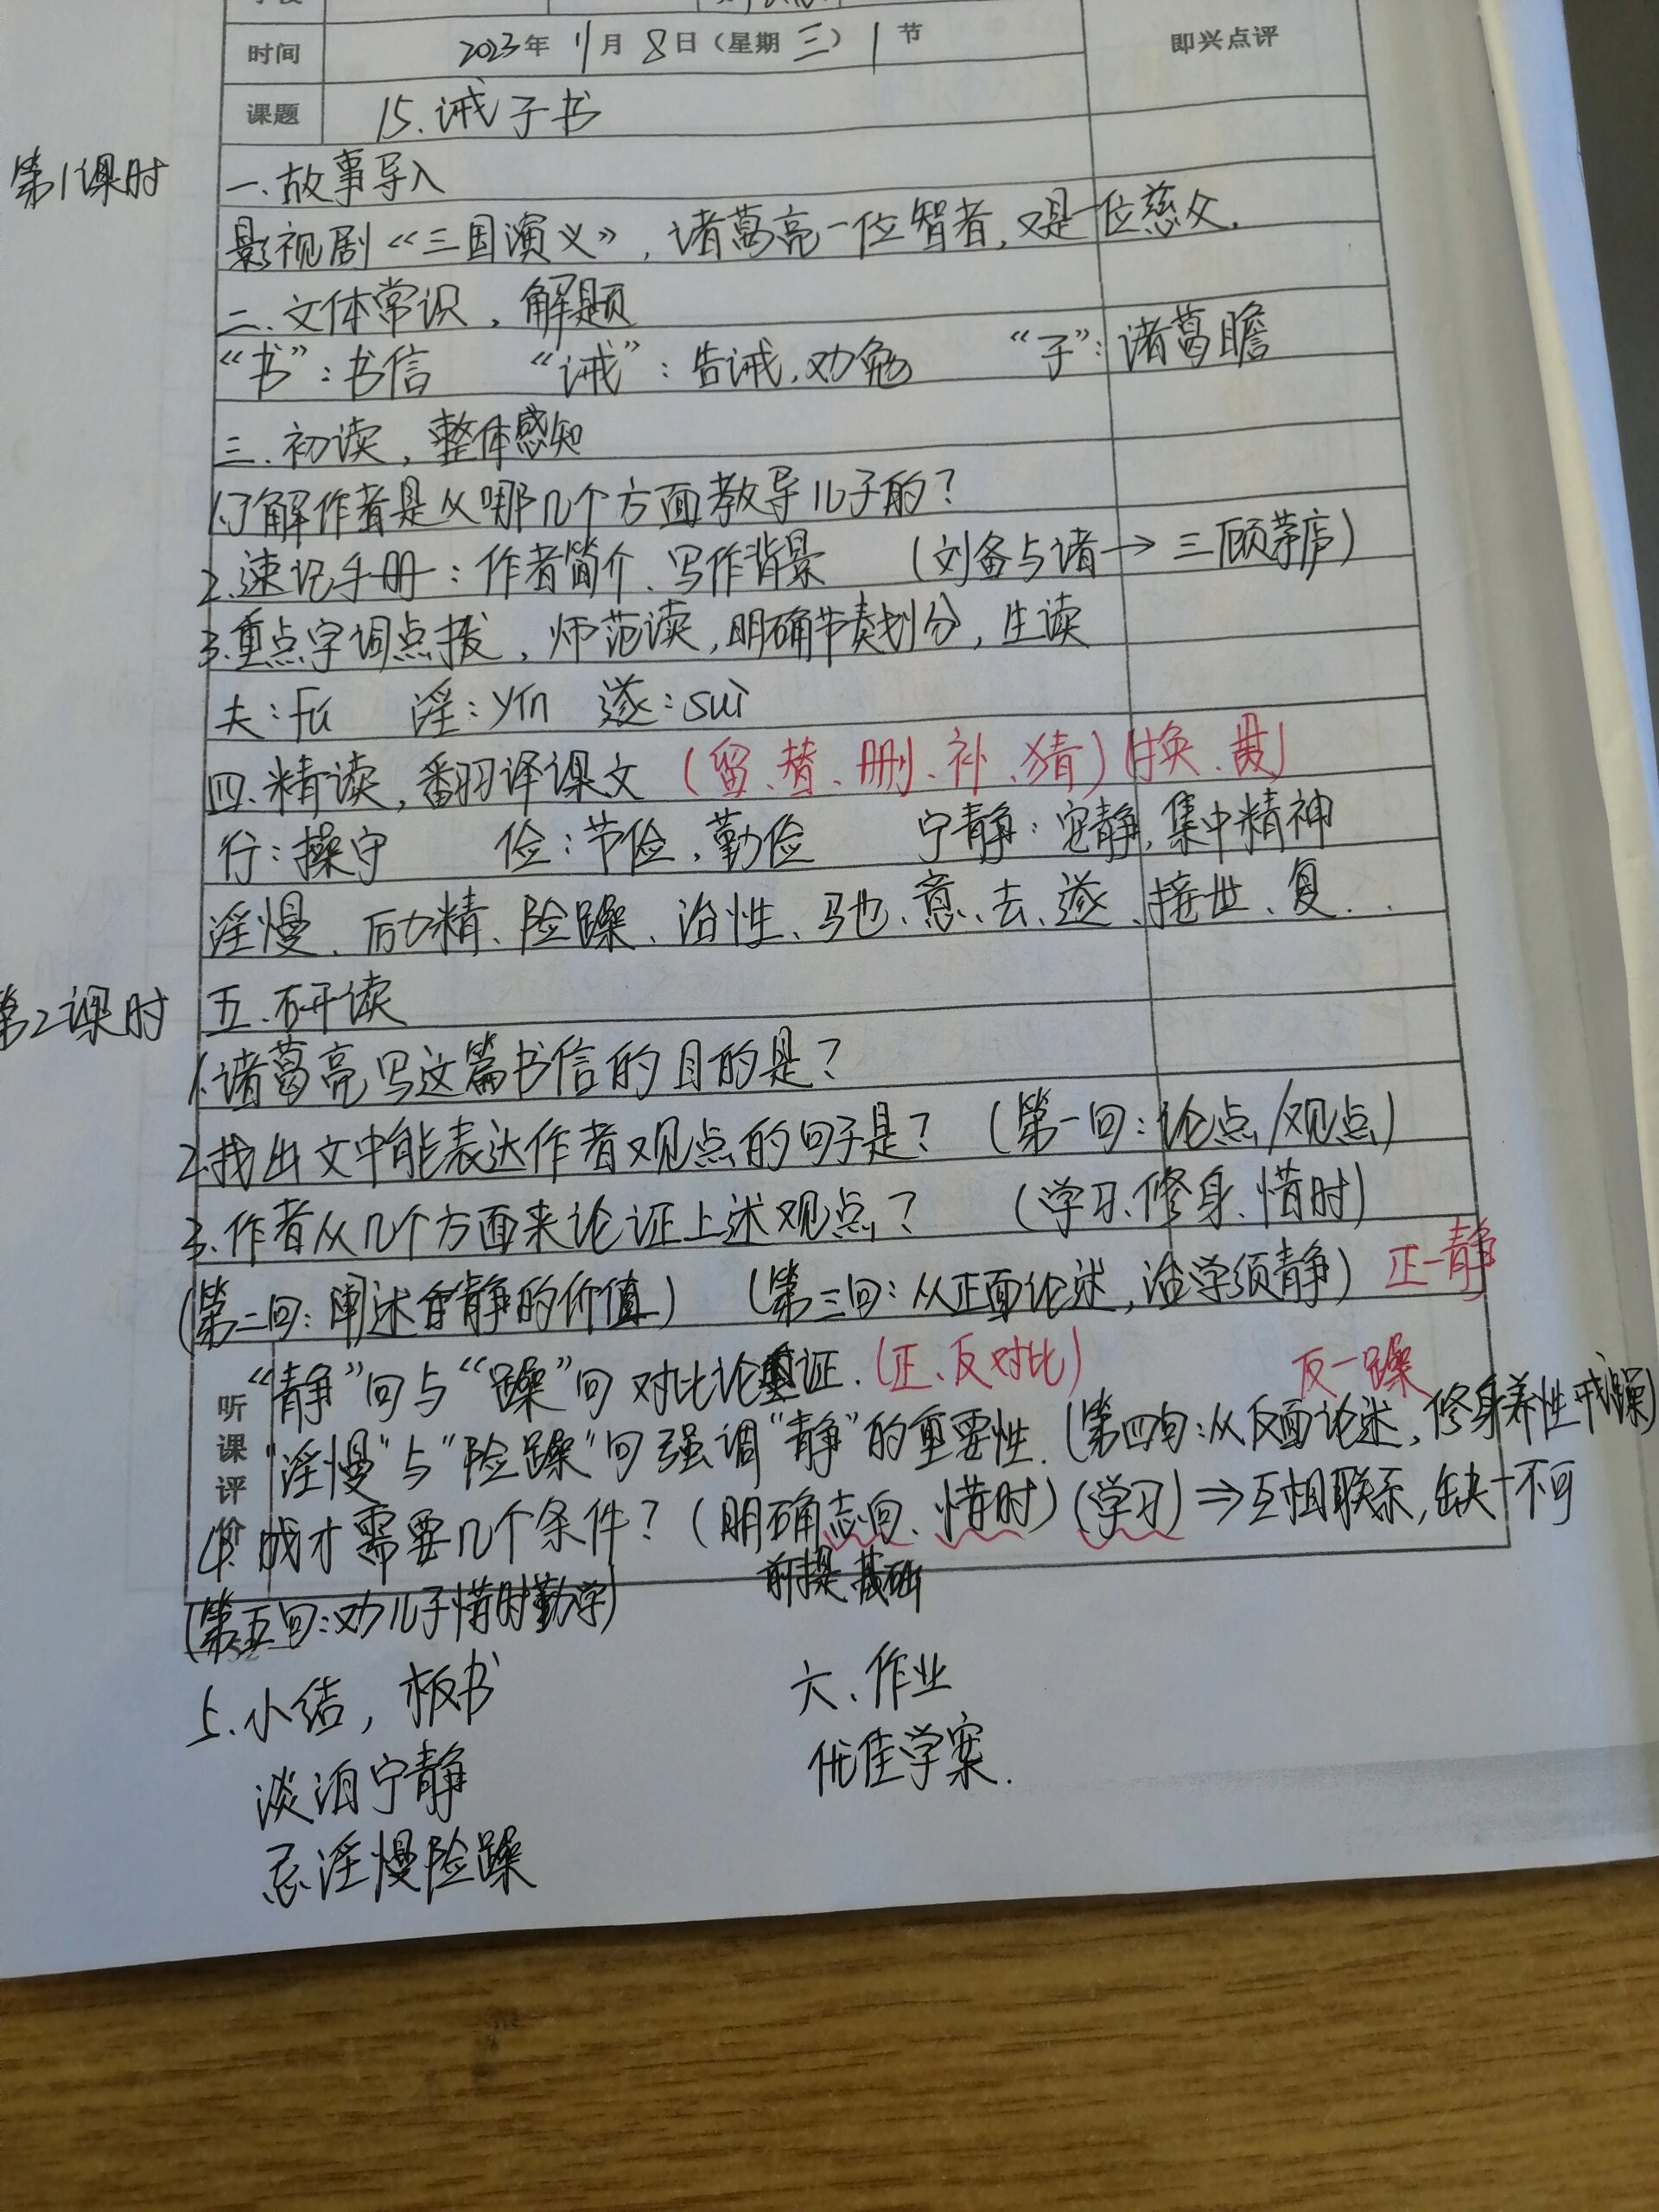 时间 2023年11月8日（星期三）1节 即兴点评
课题 15.诫子书
第1课时 一.故事导入
影视剧《三国演义》，诸葛亮一位智者，又是一位慈父.
二.文体常识，解题
“书”：书信 “诫”：告诫,劝勉 “子”：诸葛瞻
三.初读，整体感知
1.了解作者是从哪几个方面教导儿子的？
2.速记手册：作者简介、写作背景 （刘备与诸→三顾茅庐）
3.重点字词点拨，师范读，明确节奏划分，生读
夫：fú 淫：yín 遂：suì
四.精读，翻译课文（留、替、删、补、猜）（换、
行：操守 俭：节俭，勤俭 宁静：安静，集中精神
淫慢、励精、险躁、治性、驰、意、去、遂、接世、复..
第2课时 五.研读
1.诸葛亮写这篇书信的目的是？
2.找出文中能表达作者观点的句子是？（第一句：论点/观点）
3.作者从几个方面来论证上述观点？（学习、修身、惜时）
（第二句：阐述静的价值）（第三句：从正面论述，治学须静）正—静
“静”句与“躁”句对比论证.（正、反对比） 反—躁
听课评价
“淫慢”与“险躁”句强调“静”的重要性.（第四句：从反面论述，修身养性戒躁）
4.成才需要几个条件？（明确志向、惜时）（学习）⇒互相联系，缺一不可
前提 基础
（第五句：劝儿子惜时勤学）
32
5.小结，板书 六、作业
淡泊宁静 优佳学案.
忌淫慢险躁